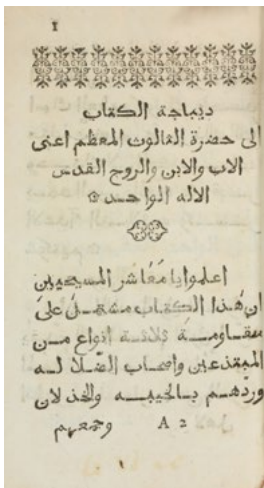 1
ديباجة الكتاب
الى حضرة الثالوث المعظم اعنى
الاب والابن والروح القدس
الاله الواحد
اعلموا يا مَعَاشر المسيحيين
ان هٰذا الكتاب مشتمل علىَ
مقاومة ثلاثة انواع من
المبتدعين واصحاب الضّلالـه
وردّهم بالخيبـه والخذلان
A 2 وجمعهم